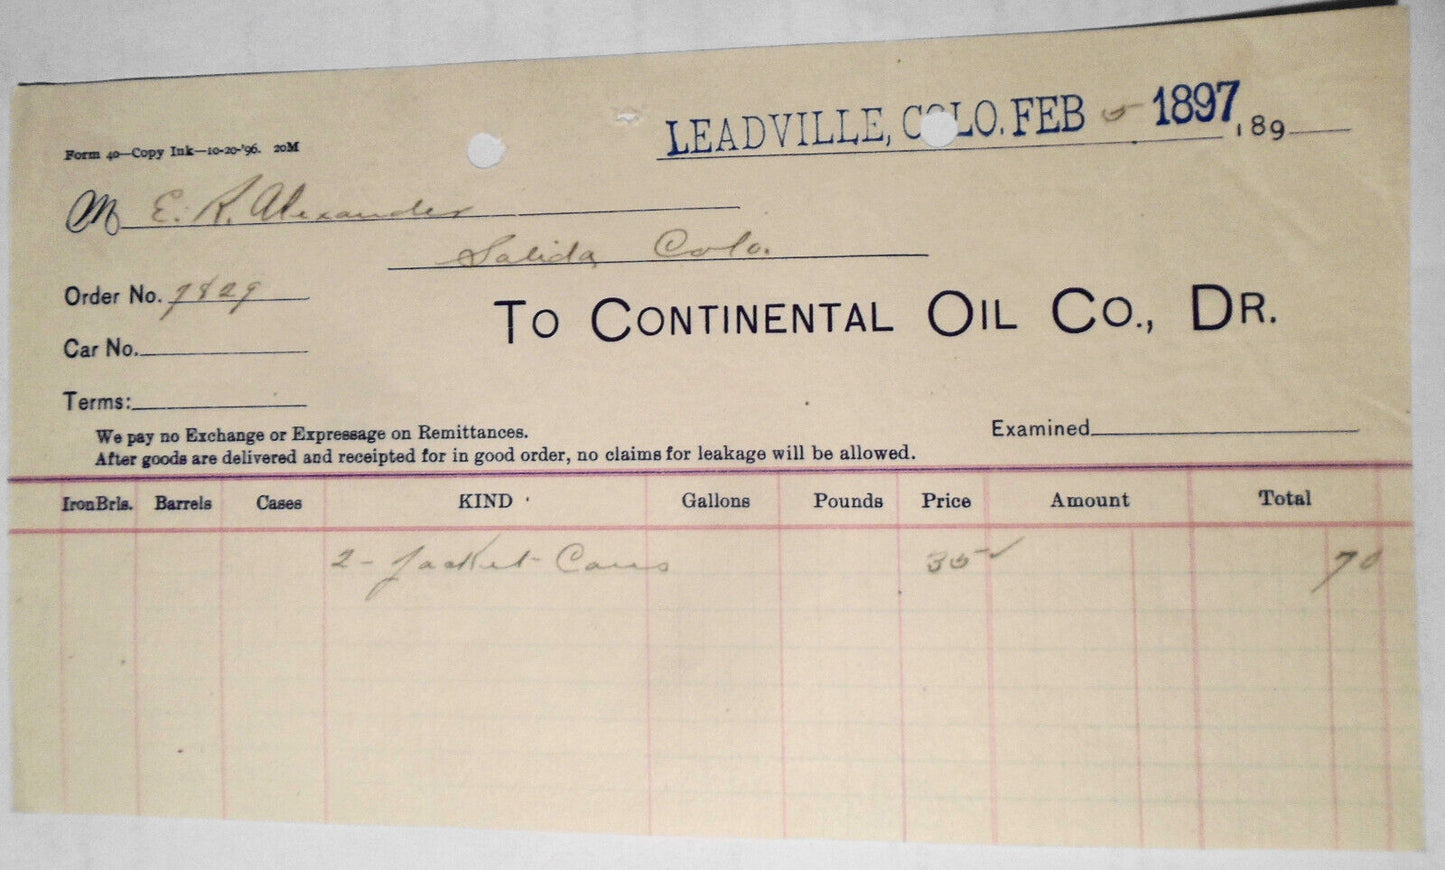 LEADVILLE, COLO. FEB 5 1897 189
Form 40—Copy Ink—10-20-'96. 20M
M E. R. Alexander
Salida Colo.
Order No. 7829
To Continental Oil Co., Dr.
Car No.
Terms:
We pay no Exchange or Expressage on Remittances.
Examined
After goods are delivered and receipted for in good order, no claims for leakage will be allowed.
Iron Brls. Barrels Cases KIND Gallons Pounds Price Amount Total
2 - Jacket Cans 35 ✓ 70